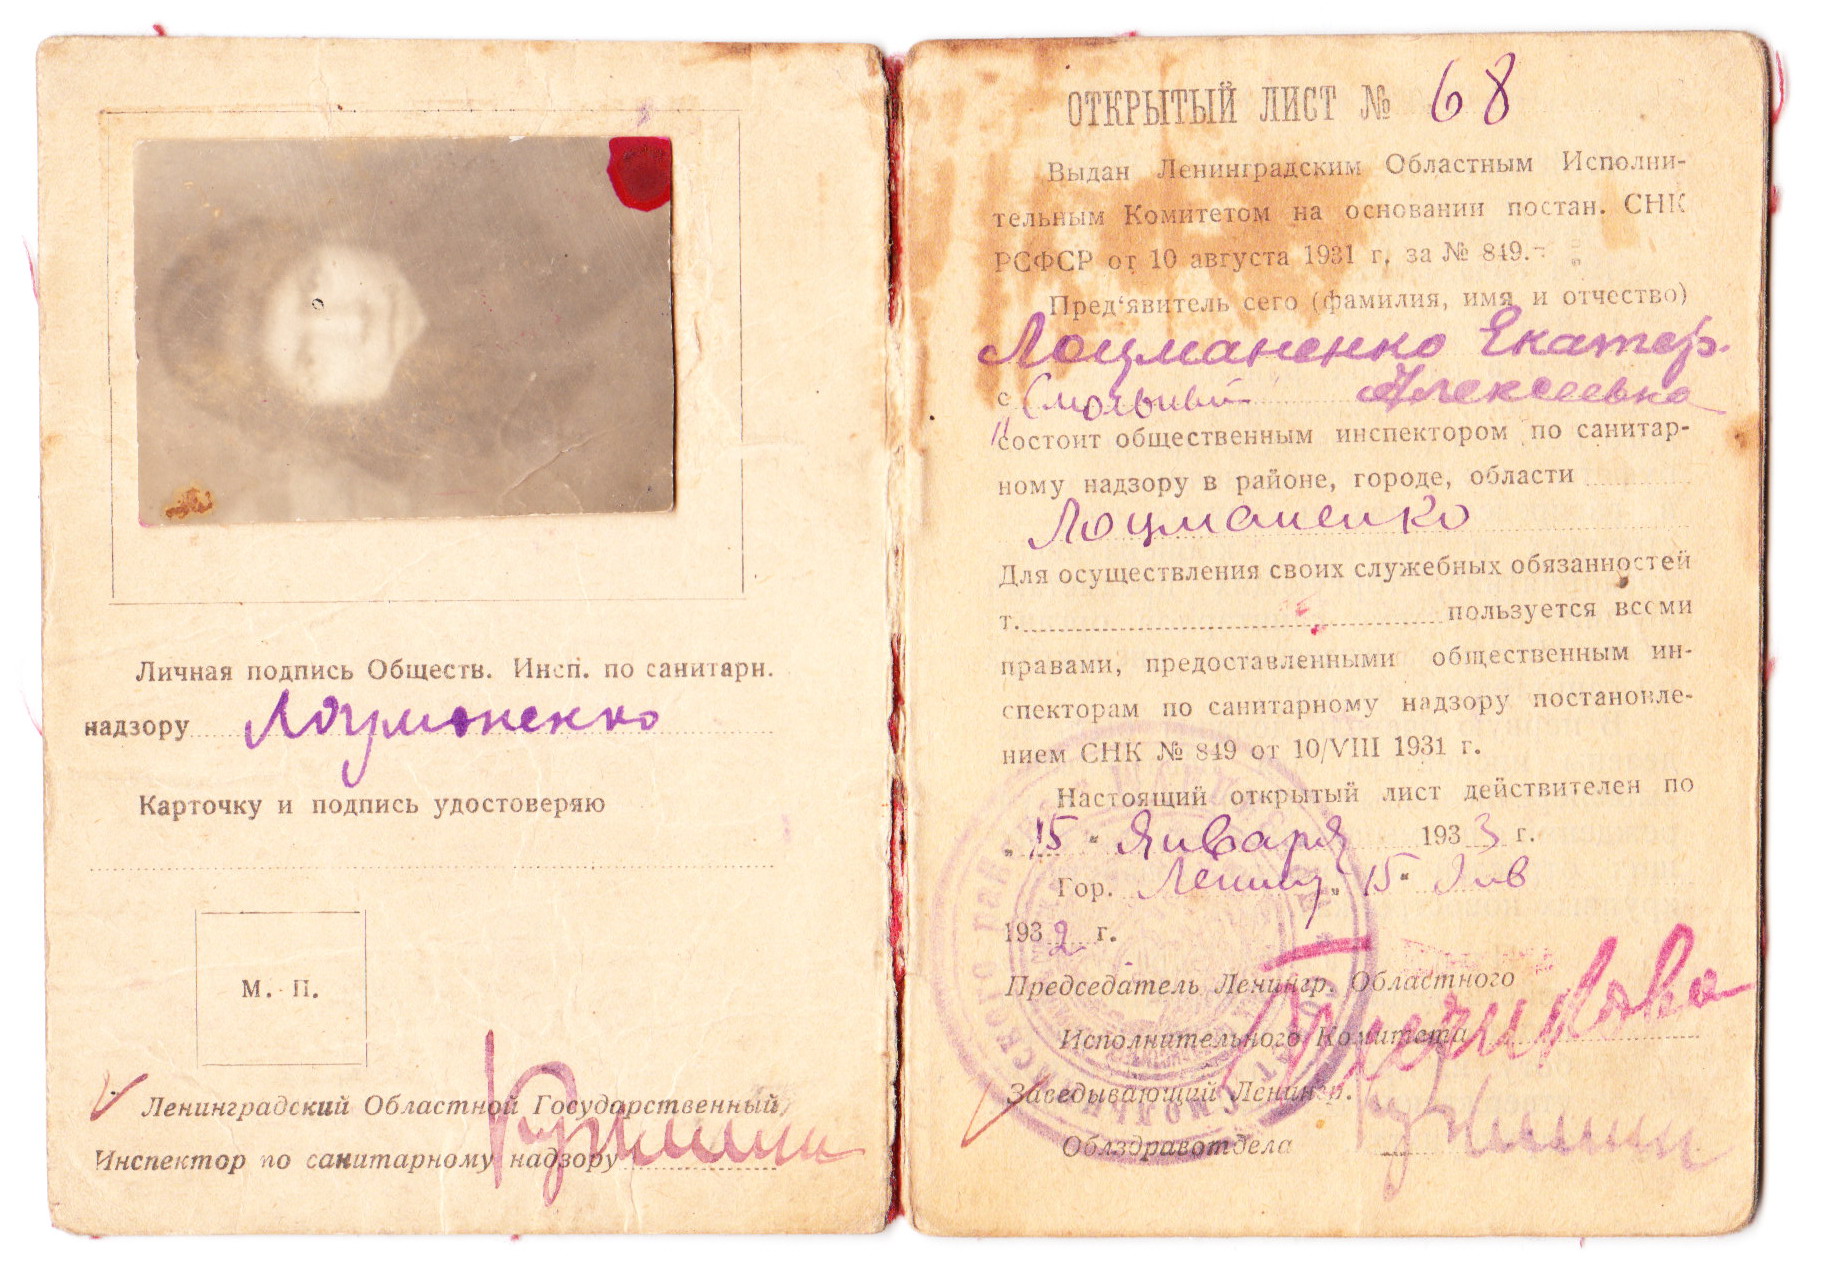 Личная подпись Обществ. Инсп. по санитарн.
надзору Лоцманенко
Карточку и подпись удостоверяю
М. П.
Ленинградский Областной Государственный
Инспектор по санитарному надзору
ОТКРЫТЫЙ ЛИСТ № 68
Выдан Ленинградским Областным Исполни-
тельным Комитетом на основании постан. СНК
РСФСР от 10 августа 1931 г. за № 849.-
Пред‘явитель сего (фамилия, имя и отчество)
Лоцманенко Екатер.
Алексеевна
состоит общественным инспектором по санитар-
ному надзору в районе, городе, области
Лоцманенко
Для осуществления своих служебных обязанностей
т. пользуется всеми
правами, предоставленными общественным ин-
спекторам по санитарному надзору постановле-
нием СНК № 849 от 10/VIII 1931 г.
Настоящий открытый лист действителен по
„15“ Января 1933 г.
Гор. „15“ Янв
1932 г.
Председатель Ленингр. Областного
Исполнительного Комитета
Заведывающий Ленингр.
Облздравотдела